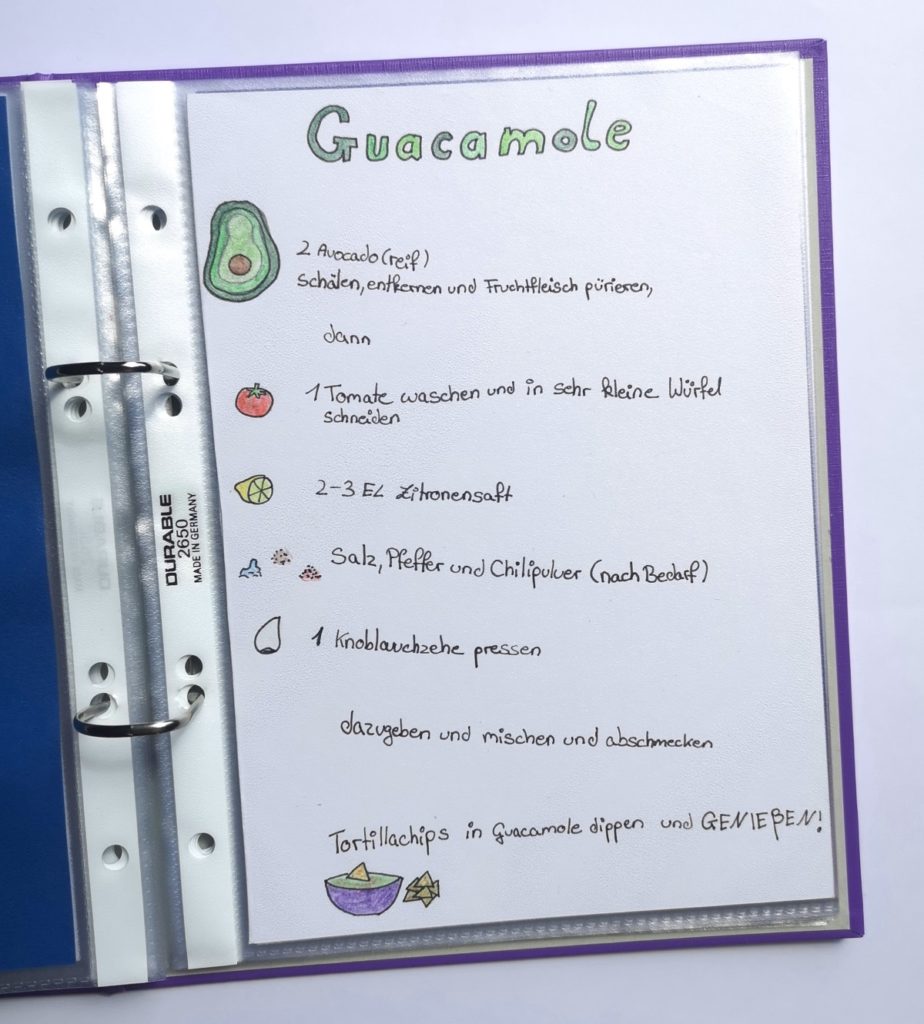 Guacamole
2 Avocado (reif)
Schälen, entkernen und Fruchtfleisch pürieren,
dann
1 Tomate waschen und in sehr kleine Würfel
schneiden
2-3 EL Zitronensaft
Salz, Pfeffer und Chilipulver (nach Bedarf)
1 Knoblauchzehe pressen
dazugeben und mischen und abschmecken
Tortillachips in Guacamole dippen und GENIEßEN!
DURABLE
2650
MADE IN GERMANY